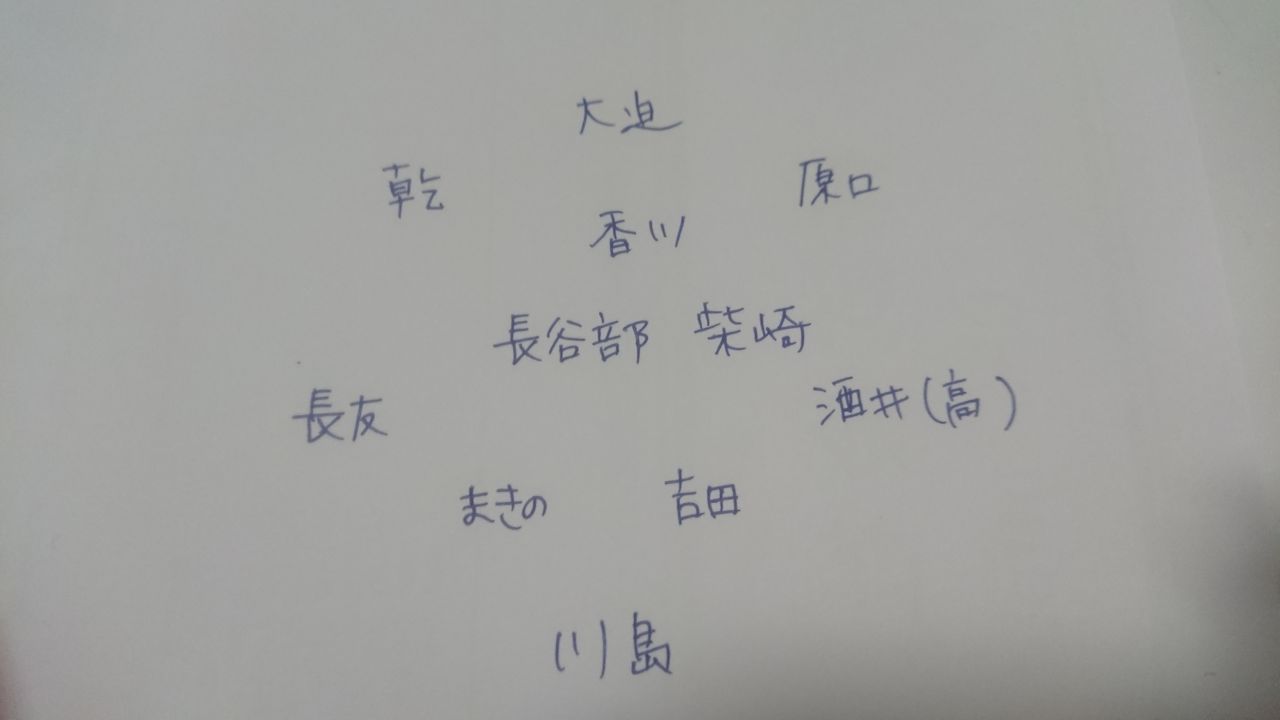 大迫
乾 原口
香川
長谷部 柴崎
長友 酒井(高)
まきの 吉田
川島